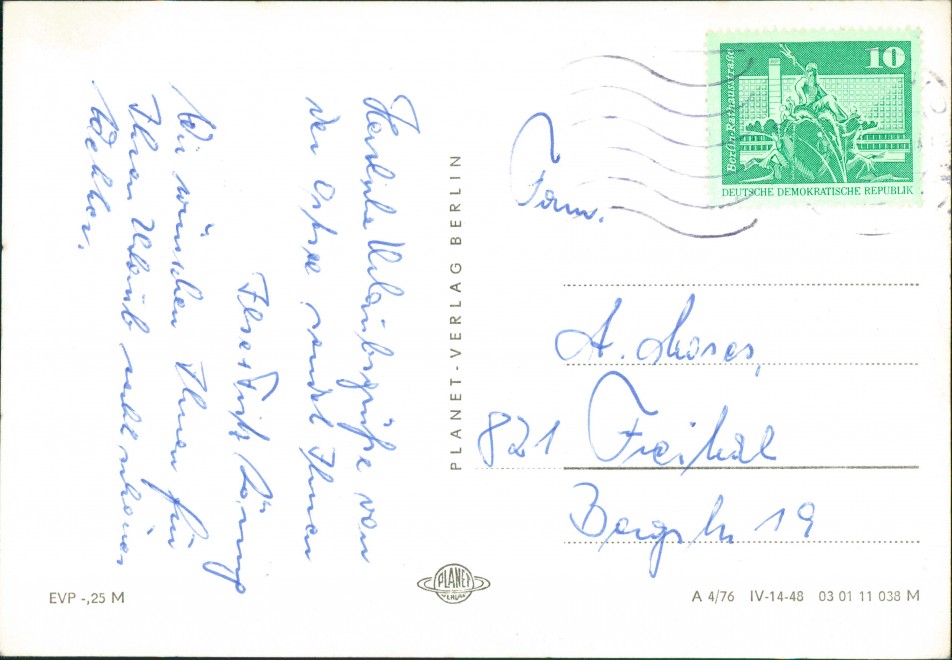 Herzliche Urlaubsgrüße von
der Ostsee sendet Ihnen
Ilse + Fritz
Wir wünschen Ihnen für
Ihren Urlaub recht schönes
Wetter.
PLANET-VERLAG BERLIN
Berlin · Rathausstraße
10
DEUTSCHE DEMOKRATISCHE REPUBLIK
Fam.
A. Moses,
821 Freital
Bergstr. 19
PLANET
VERLAG
EVP -,25 M
A 4/76 IV-14-48 03 01 11 038 M